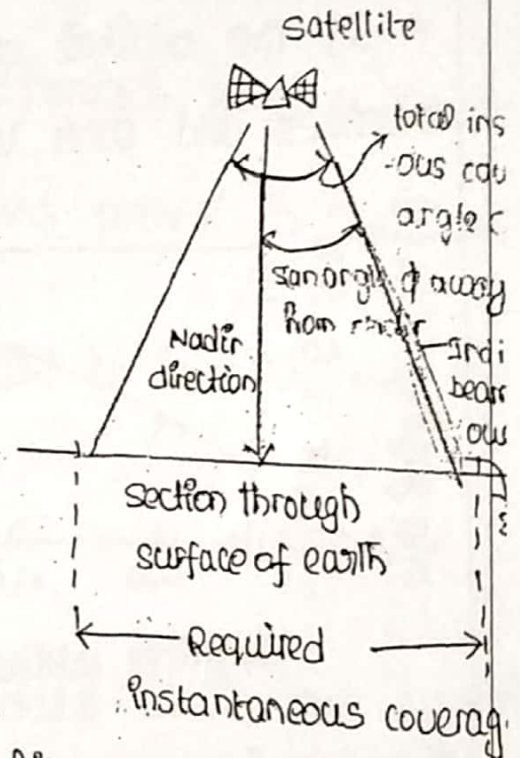 satellite
total ins
-ous cov
angle
φ away
from
Nadir
direction
Indi
beam
ow
section through
surface of earth
Required
instantaneous coverag